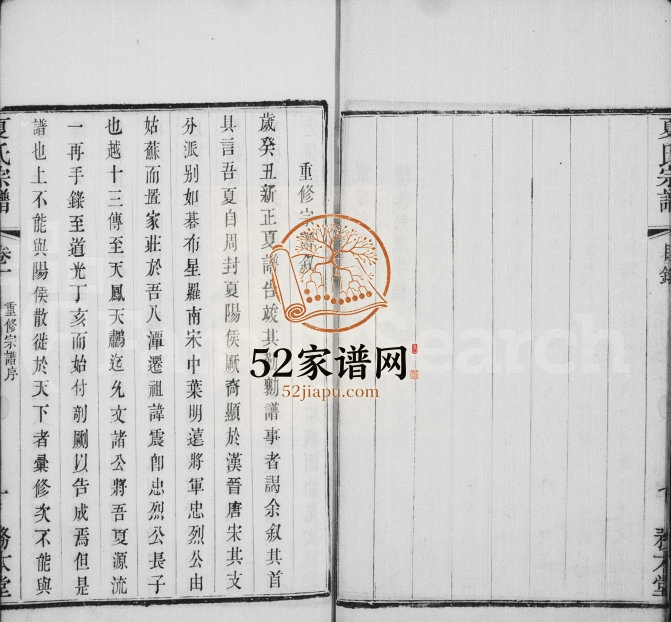 重修宗
歲癸丑新正夏譜告竣其勷譜事者謁余叙其首
具言吾夏自周封夏陽侯厥裔顯於漢晉唐宋其支
分派别如碁布星羅南宋中葉明遠將軍忠烈公由
姑蘇而置家莊於吾八潭遷祖諱震卽忠烈公長子
也越十三傳至天鳳天鵬迄允文諸公將吾夏源流
一再手錄至道光丁亥而始付剞劂以告成焉但是
譜也上不能與陽侯散徙於天下者彙修次不能與
夏氏宗譜
卷一
重修宗譜序
一
務本堂
夏氏宗譜
目錄
務本堂
52家谱网
52jiapu.com
Search